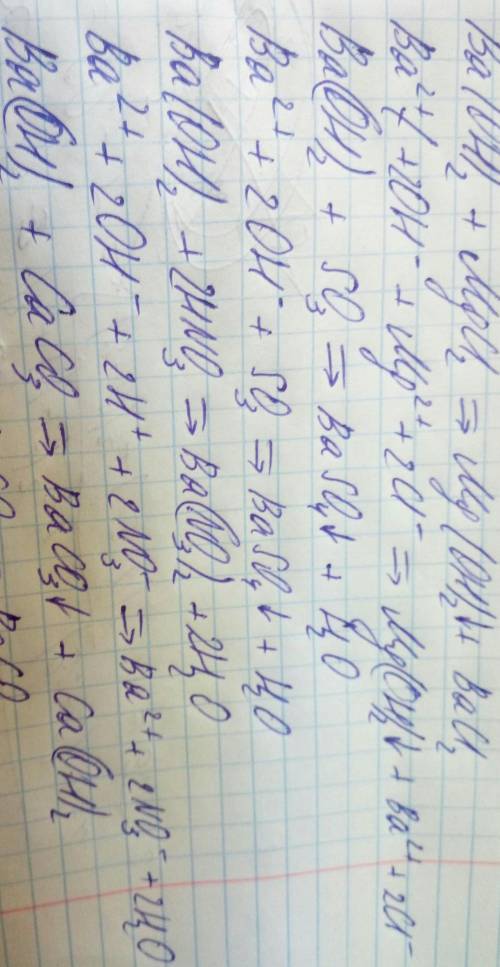 Ba(OH)₂ + MgCl₂ ⇒ Mg(OH)₂↓ + BaCl₂
Ba²⁺ + 2OH⁻ + Mg²⁺ + 2Cl⁻ ⇒ Mg(OH)₂↓ + Ba²⁺ + 2Cl⁻
Ba(OH)₂ + SO₃ ⇒ BaSO₄↓ + H₂O
Ba²⁺ + 2OH⁻ + SO₃ ⇒ BaSO₄↓ + H₂O
Ba(OH)₂ + 2HNO₃ ⇒ Ba(NO₃)₂ + 2H₂O
Ba²⁺ + 2OH⁻ + 2H⁺ + 2NO₃⁻ ⇒ Ba²⁺ + 2NO₃⁻ + 2H₂O
Ba(OH)₂ + CaCO₃ ⇒ BaCO₃↓ + Ca(OH)₂